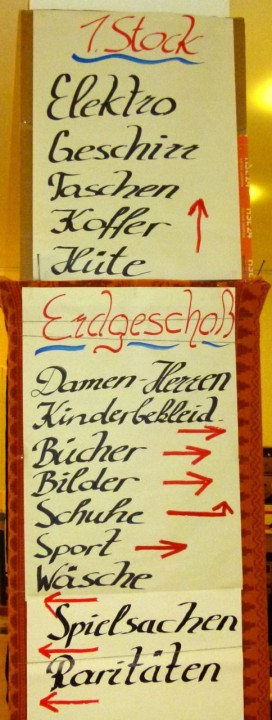 1. Stock
Elektro
Geschirr
Taschen
Koffer
Hüte
Erdgeschoß
Damen-Herren
Kinderbekleid.
Bücher
Bilder
Schuhe
Sport
Wäsche
Spielsachen
Raritäten